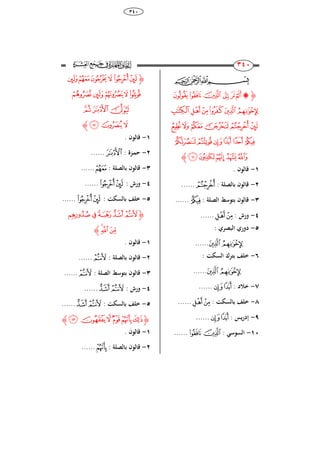 ٣٤٠
٣٤٠
﴿ ۞ أَلَمْ تَرَ إِلَى ٱلَّذِينَ نَافَقُوا۟ يَقُولُونَ
لِإِخْوَٰنِهِمُ ٱلَّذِينَ كَفَرُوا۟ مِنْ أَهْلِ ٱلْكِتَٰبِ
لَئِنْ أُخْرِجْتُمْ لَنَخْرُجَنَّ مَعَكُمْ وَلَا نُطِيعُ
فِيكُمْ أَحَدًا أَبَدًا وَإِن قُوتِلْتُمْ لَنَنصُرَنَّكُمْ
وَٱللَّهُ يَشْهَدُ إِنَّهُمْ لَكَٰذِبُونَ ﴾
١- قالون .
٢- قالون بالصلة : أُخْرِجْتُمْ ......
٣- قالون بتوسط الصلة : فِيكُمْ ......
٤- ورش : مِنْ أَهْلِ ......
٥- دوري البصري :
لِإِخْوَٰنِهِمُ ٱلَّذِينَ ......
٦- خلف بترك السكت :
لِإِخْوَٰنِهِمُ ٱلَّذِينَ ......
٧- خلاد : أَبَدًا وَإِن ......
٨- خلف بالسكت : مِنْ أَهْلِ ......
٩- إدريس : أَبَدًا وَإِن ......
١٠- السوسي : ٱلَّذِينَ نَافَقُوا۟ ......
﴿ لَئِنْ أُخْرِجُوا۟ لَا يَخْرُجُونَ مَعَهُمْ وَلَئِن
قُوتِلُوا۟ لَا يَنصُرُونَهُمْ وَلَئِن نَّصَرُوهُمْ
لَيُوَلُّنَّ ٱلْأَدْبَٰرَ ثُمَّ
لَا يُنصَرُونَ ﴾
١- قالون .
٢- حمزة : ٱلْأَدْبَٰرَ ......
٣- قالون بالصلة : مَعَهُمْ ......
٤- ورش : لَئِنْ أُخْرِجُوا۟ ......
٥- خلف بالسكت : لَئِنْ أُخْرِجُوا۟ ......
﴿ لَأَنتُمْ أَشَدُّ رَهْبَةً فِى صُدُورِهِم
مِّنَ ٱللَّهِ ﴾
١- قالون .
٢- قالون بالصلة : لَأَنتُمْ ......
٣- قالون بتوسط الصلة : لَأَنتُمْ ......
٤- ورش : لَأَنتُمْ أَشَدُّ ......
٥- خلف بالسكت : لَأَنتُمْ أَشَدُّ ......
﴿ ذَٰلِكَ بِأَنَّهُمْ قَوْمٌ لَّا يَفْقَهُونَ ﴾
١- قالون .
٢- قالون بالصلة : بِأَنَّهُمْ ......